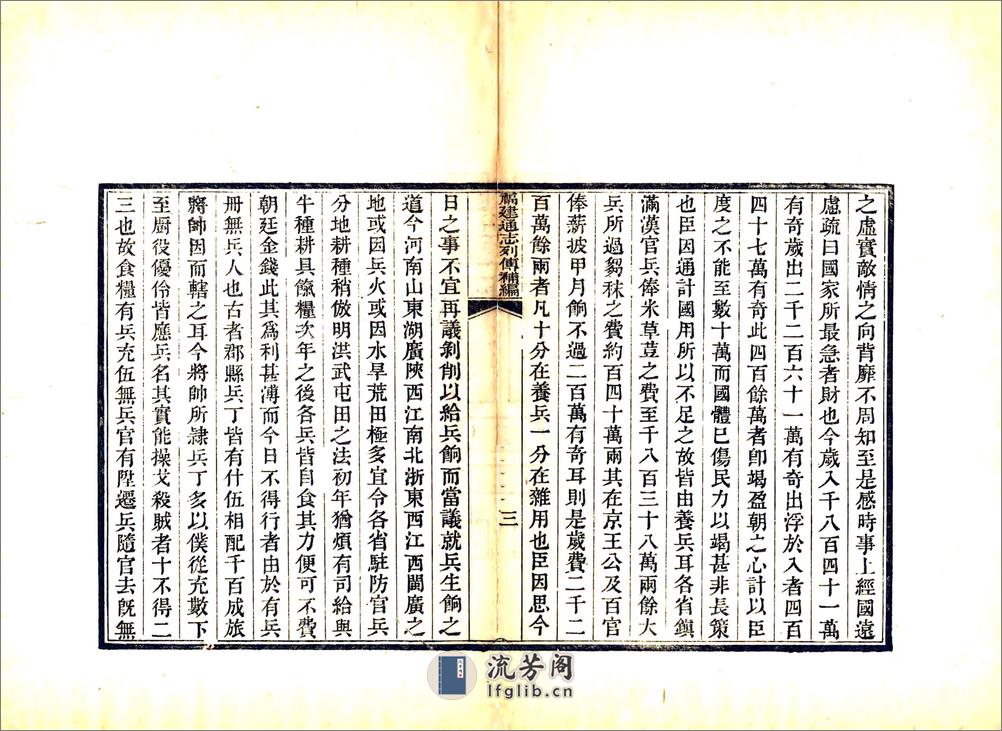 之虛實敵情之向背靡不周知至是感時事上經國遠
慮疏曰國家所最急者財也今歲入千八百四十一萬
有奇歲出二千二百六十一萬有奇出浮於入者四百
四十七萬有奇此四百餘萬者卽竭盈朝之心計以臣
度之不能至數十萬而國體已傷民力以竭甚非長策
也臣因通計國用所以不足之故皆由養兵耳各省鎮
滿漢官兵俸米草荳之費至千八百三十八萬兩餘大
兵所過芻秣之費約百四十萬兩其在京王公及百官
俸薪披甲月餉不過二百萬有奇耳則是歲費二千二
百萬餘兩者凡十分在養兵一分在雜用也臣因思今
福建通志列傳補編
三
日之事不宜再議剝削以給兵餉而當議就兵生餉之
道今河南山東湖廣陝西江南北浙東西江西閩廣之
地或因兵火或因水旱荒田極多宜令各省駐防官兵
分地耕種稍倣明洪武屯田之法初年猶煩有司給與
牛種耕具餼糧次年之後各兵皆自食其力便可不費
朝廷金錢此其爲利甚溥而今日不得行者由於有兵
冊無兵人也古者郡縣兵丁皆有什伍相配千百成旅
將帥因而轄之耳今將帥所隸兵丁多以僕從充數下
至厨役優伶皆應兵名其實能操戈殺賊者十不得二
三也故食糧有兵充伍無兵官有陞遷兵隨官去旣無
流芳阁
lfglib.cn